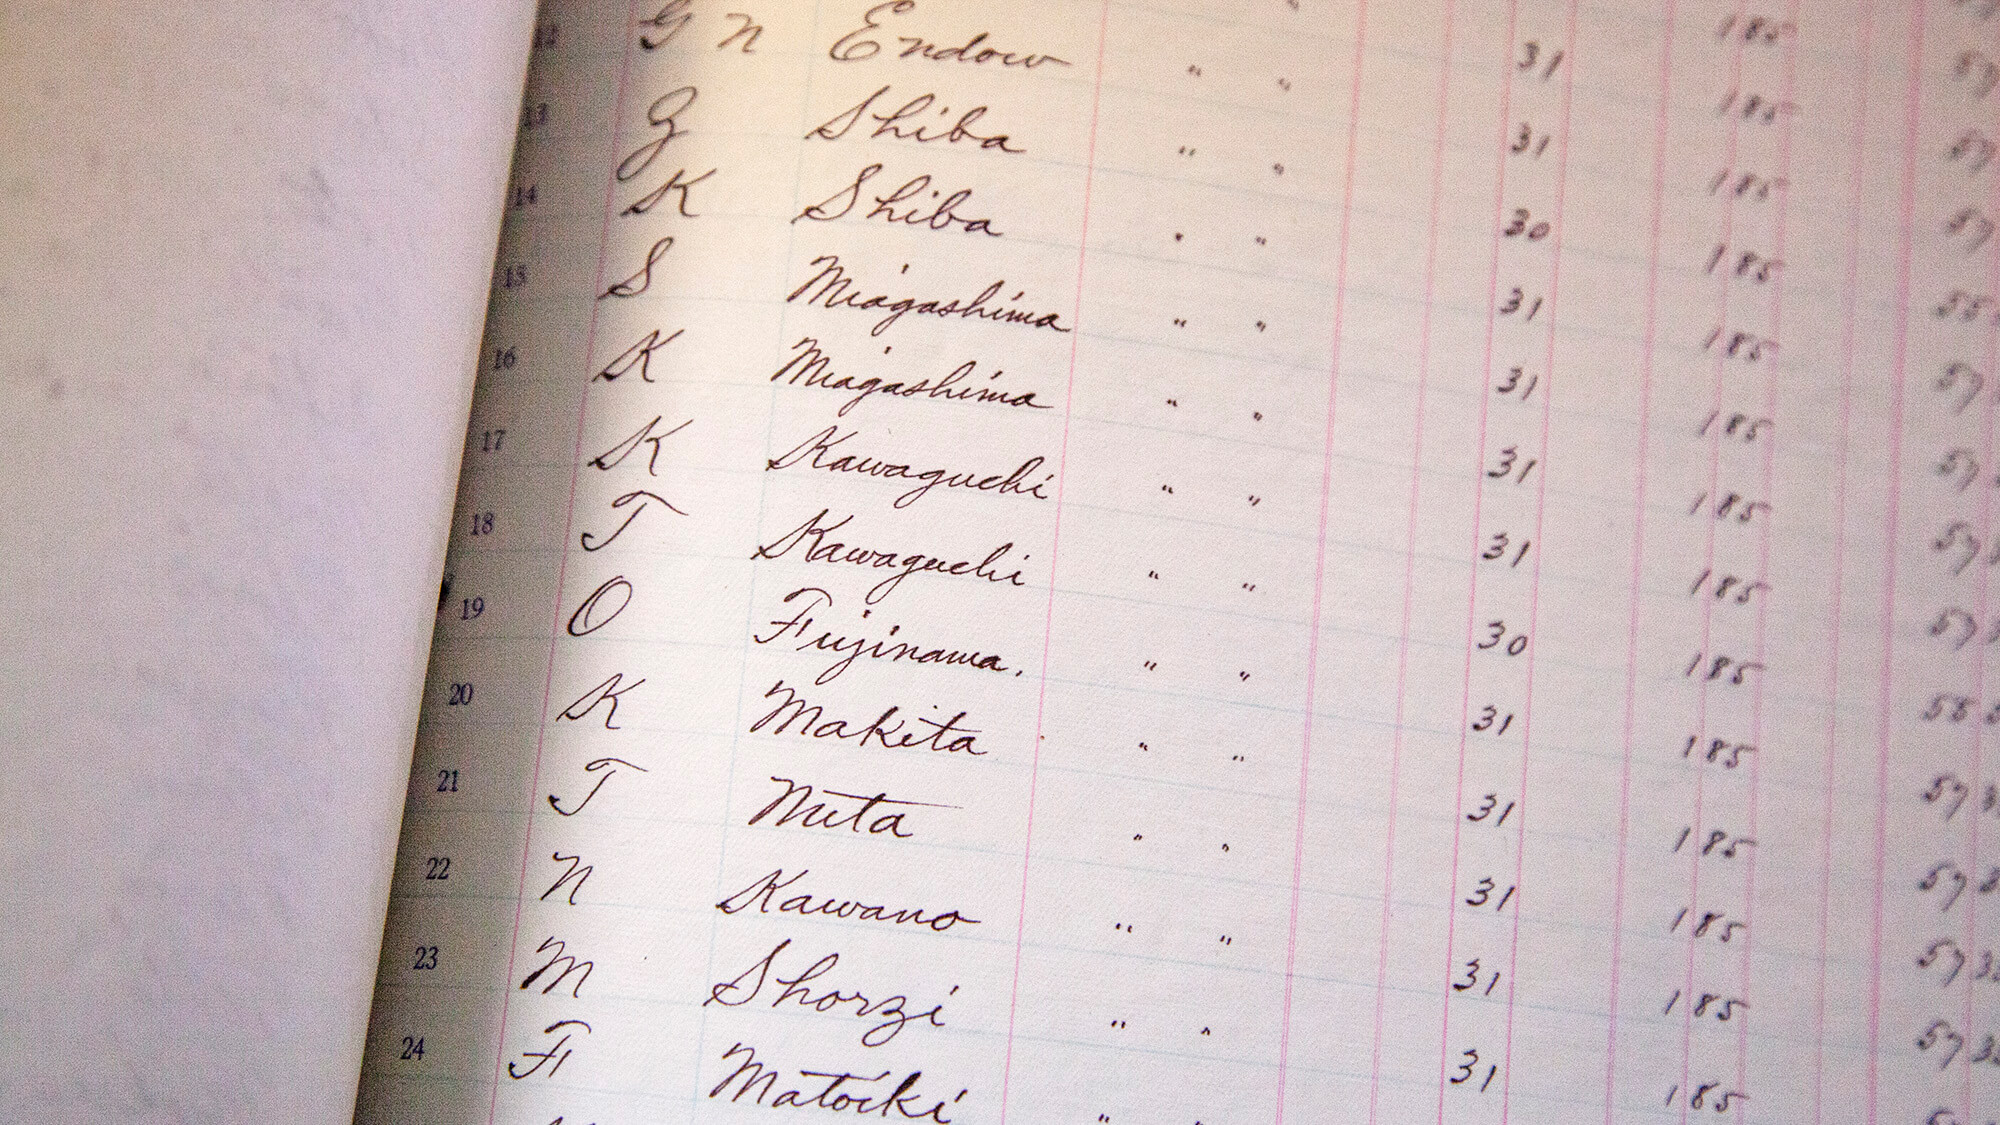 185 57
" 31 185 57
12 G N Endow " " 31 185 57
13 G Shiba " " 30 185 55
14 K Shiba " " 31 185 57
15 S Miagashima " " 31 185 57
16 K Miagashima " " 31 185 57
17 K Kawaguchi " " 31 185 57
18 T Kawaguchi " " 30 185 55
19 O Fujinawa. " " 31 185 57
20 K Makita " " 31 185 57
21 T " " 31 185 57
22 N Kawano " " 31 185 57
23 M Shorzi " " 31 185
24 F Matoiki "